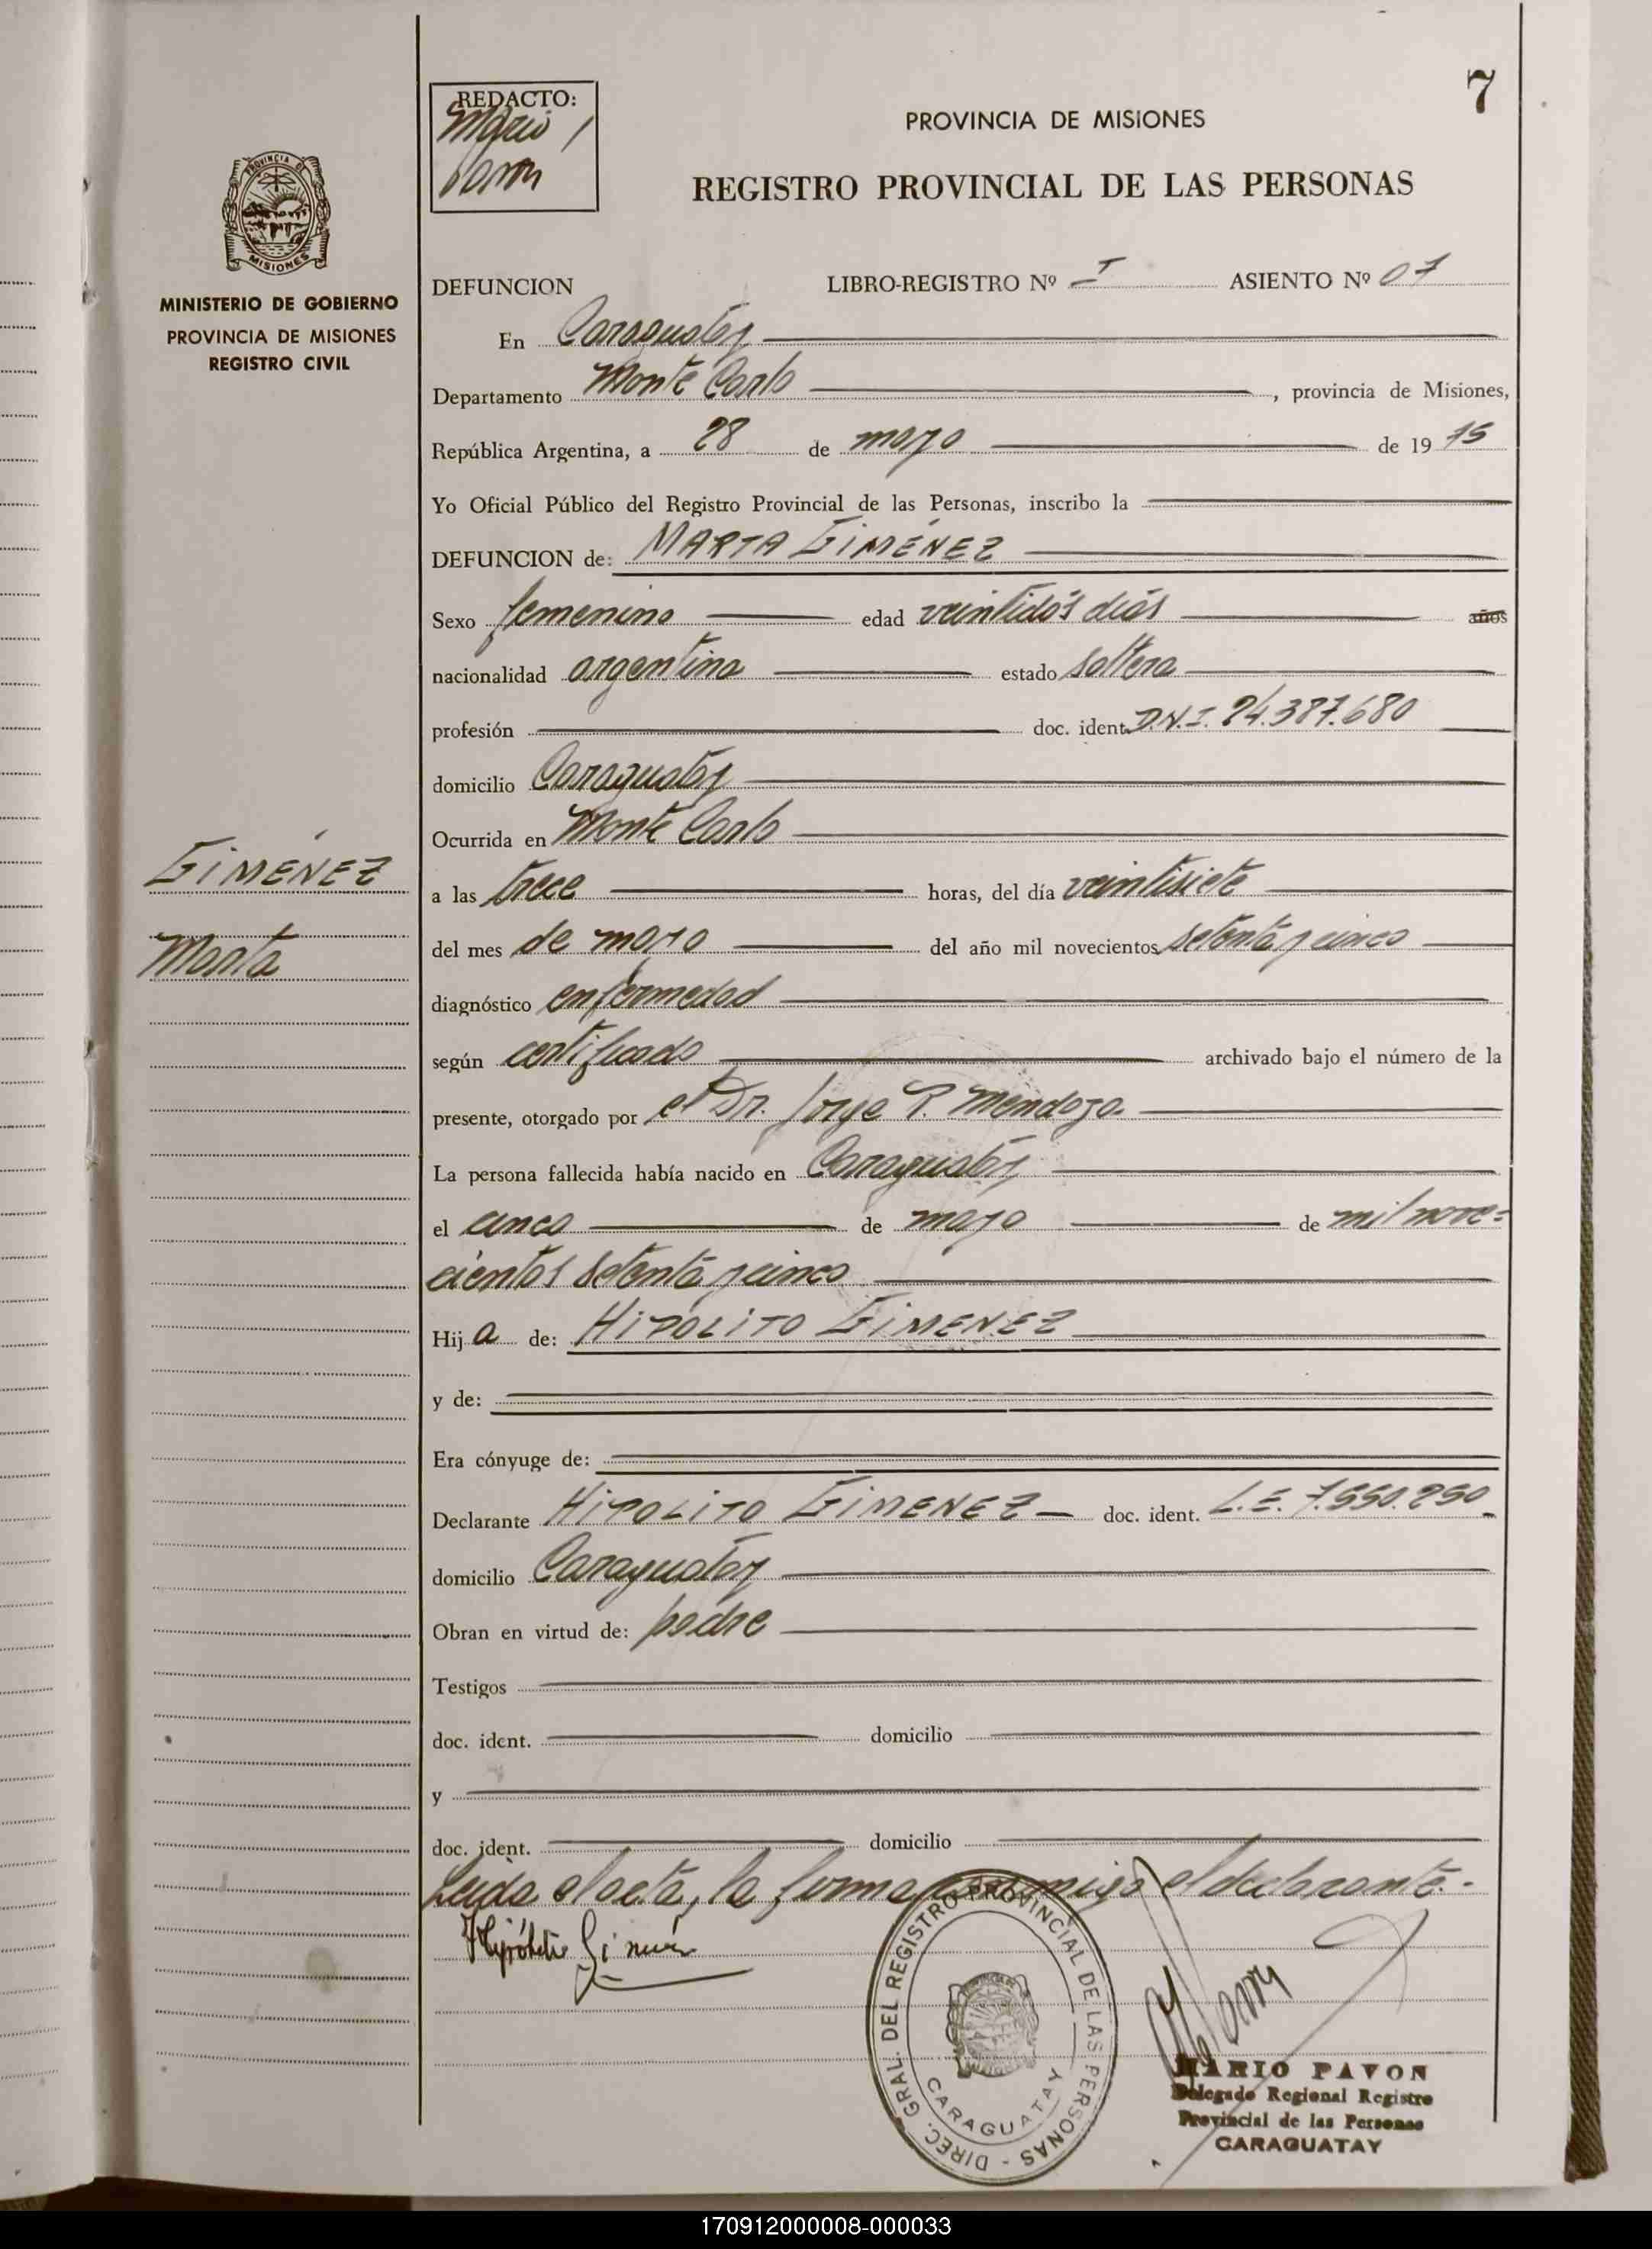 7
REDACTO:
Mario
Pavon
PROVINCIA DE MISIONES
REGISTRO PROVINCIAL DE LAS PERSONAS
PROVINCIA DE
MISIONES
MINISTERIO DE GOBIERNO
PROVINCIA DE MISIONES
REGISTRO CIVIL
DEFUNCION LIBRO-REGISTRO Nº I ASIENTO Nº 07
En Caraguatay
Departamento Monte Carlo, provincia de Misiones,
República Argentina, a 28 de mayo de 1975
Yo Oficial Público del Registro Provincial de las Personas, inscribo la
DEFUNCION de: MARTA GIMÉNEZ
Sexo femenino edad veintidós días años
nacionalidad argentina estado soltera
profesión doc. ident. D.N.I. 24.387.680
domicilio Caraguatay
Ocurrida en Monte Carlo
GIMÉNEZ
Marta
a las trece horas, del día veintisiete
del mes de mayo del año mil novecientos setenta y cinco
diagnóstico enfermedad
según certificado archivado bajo el número de la
presente, otorgado por el Dr. Jorge P. Mendoza.
La persona fallecida había nacido en Caraguatay
el cinco de mayo de mil nove=
cientos setenta y cinco
Hija de: HIPÓLITO GIMENEZ
y de:
Era cónyuge de:
Declarante HIPOLITO GIMENEZ doc. ident. L.E. 7.550.250
domicilio Caraguatay
Obran en virtud de: padre
Testigos
doc. ident. domicilio
y
doc. ident. domicilio
Leida el acta, la firma conmigo el declarante.-
Hipólito Giménez
DIREC. GRAL. DEL REGISTRO PROVINCIAL DE LAS PERSONAS -
CARAGUATAY
MPavon
MARIO PAVON
Delegado Regional Registro
Provincial de las Personas
CARAGUATAY
170912000008-000033